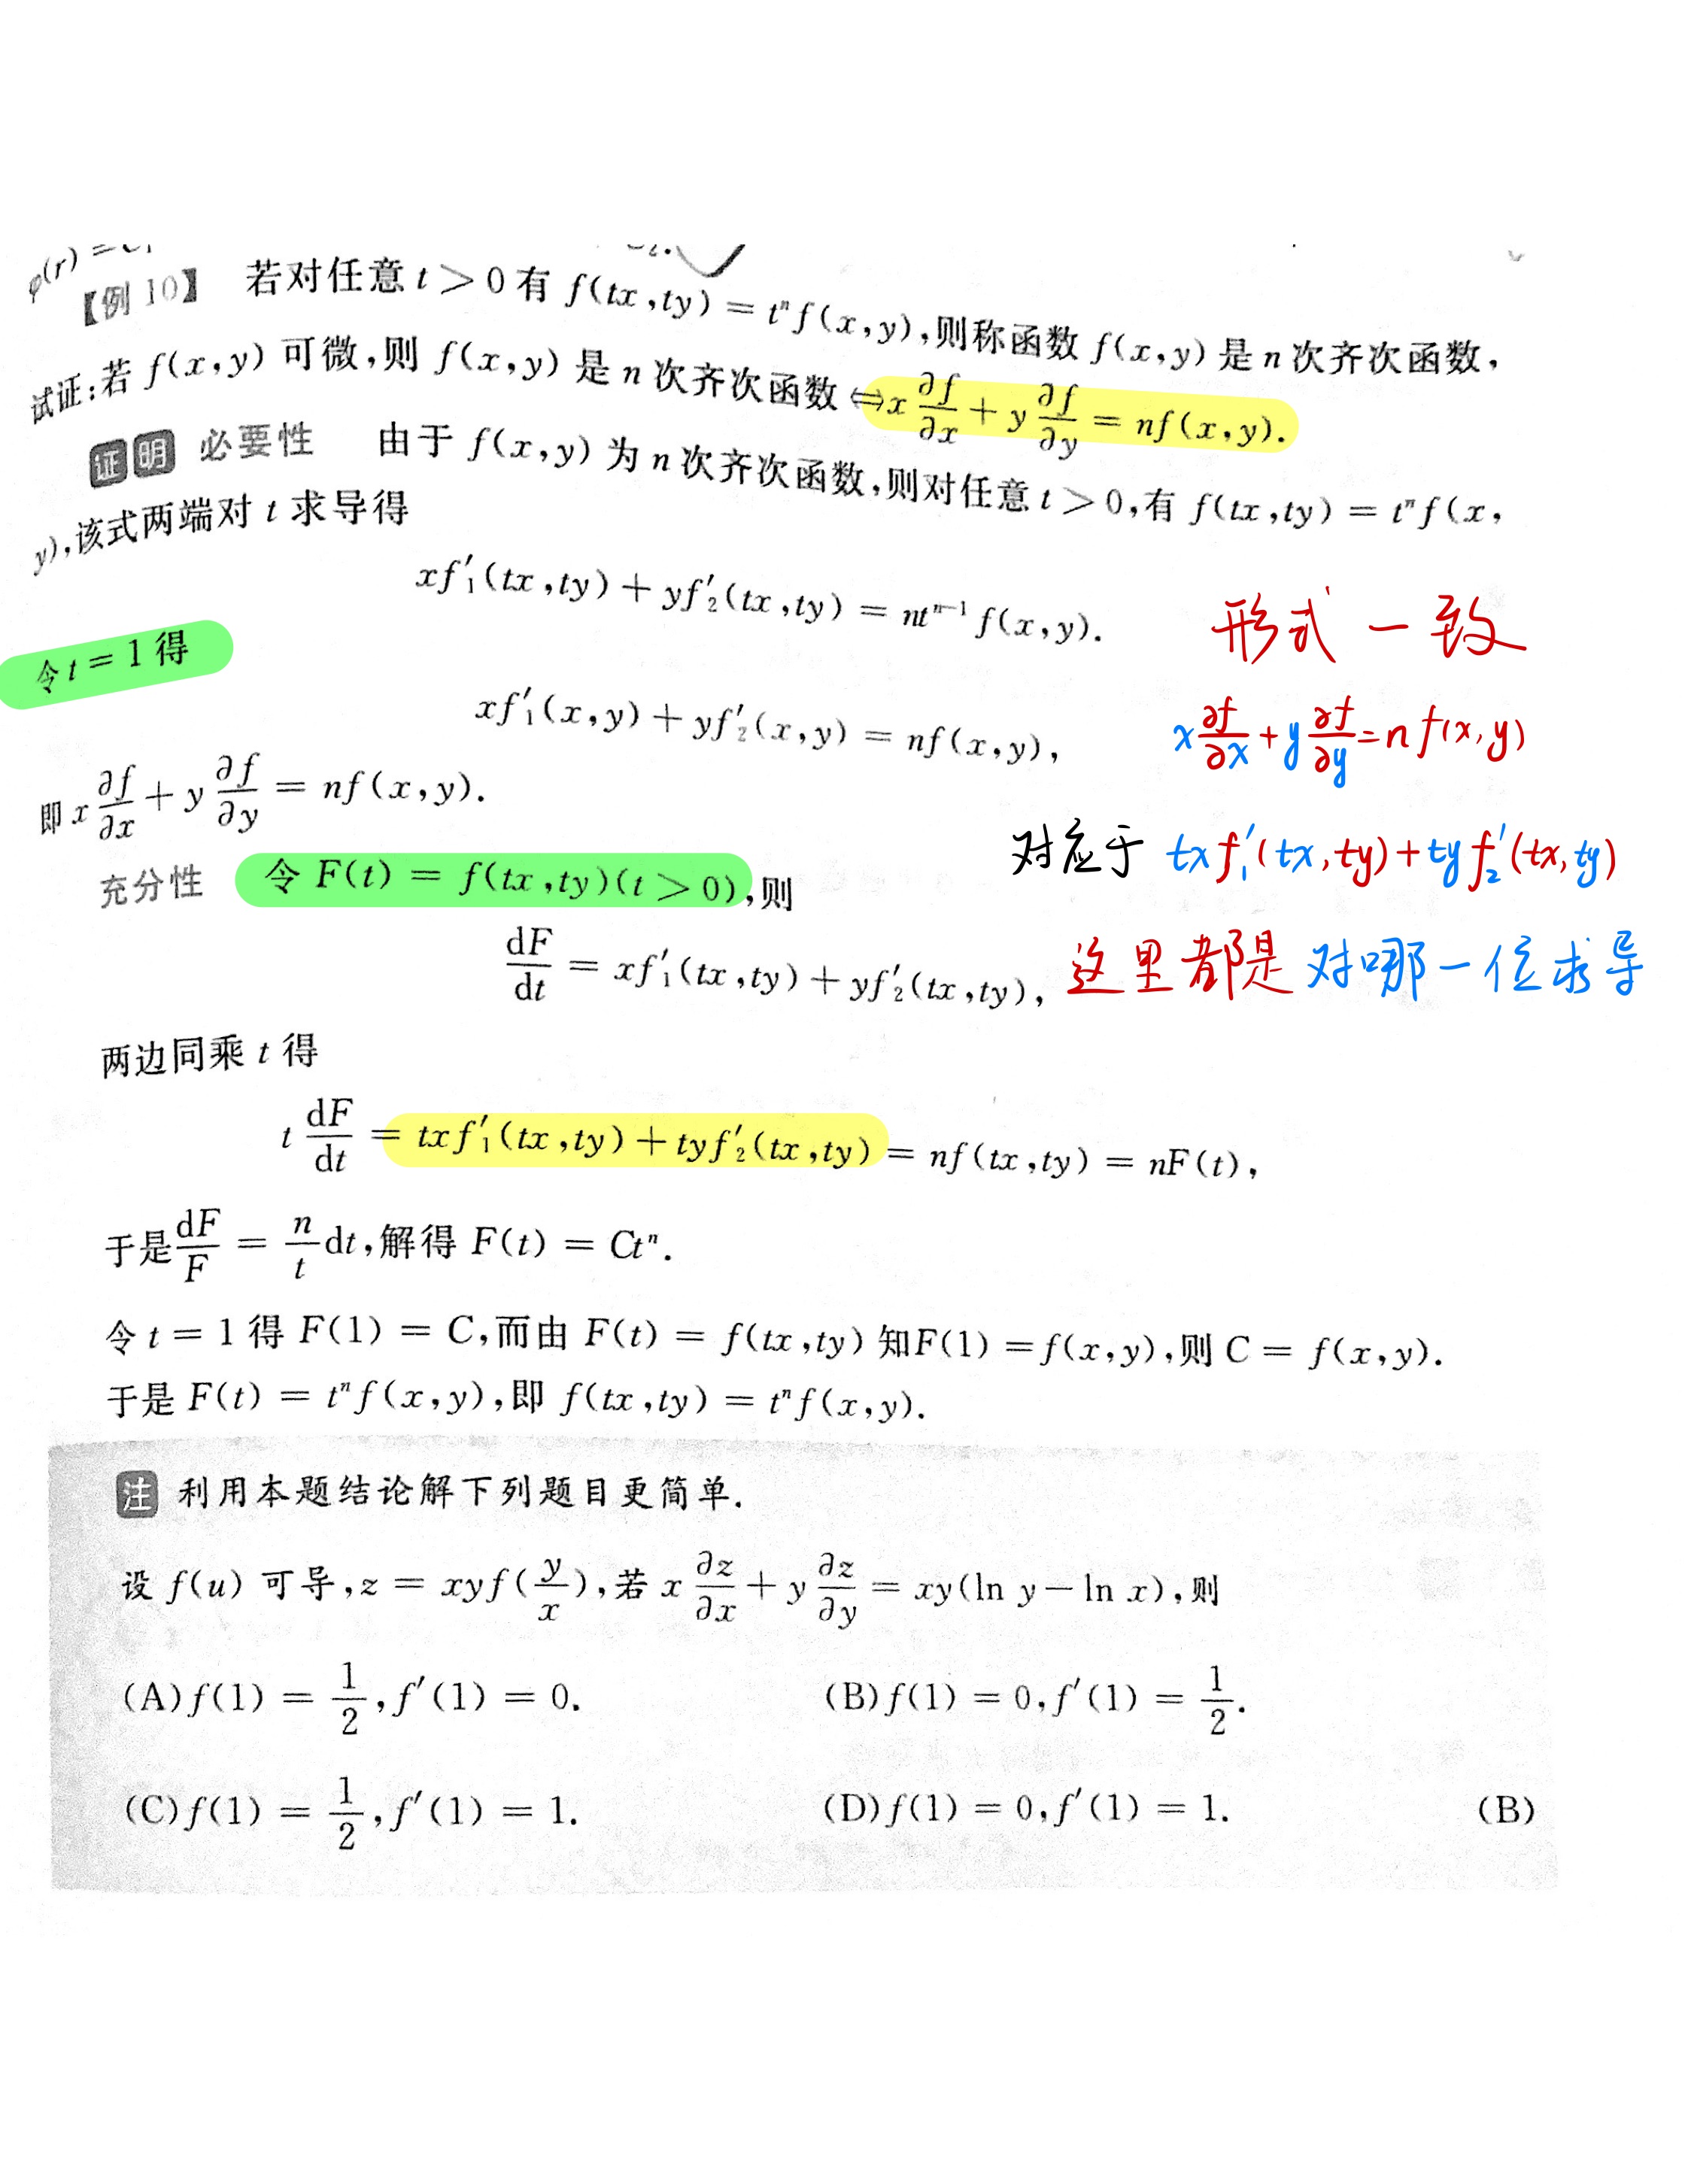 φ(r) =
【例 10】 若对任意 t > 0 有 f(tx,ty) = tⁿf(x,y),则称函数 f(x,y) 是 n 次齐次函数,
试证:若 f(x,y) 可微,则 f(x,y) 是 n 次齐次函数 ⇔ x ∂f/∂x + y ∂f/∂y = nf(x,y).
证明 必要性 由于 f(x,y) 为 n 次齐次函数,则对任意 t > 0,有 f(tx,ty) = tⁿf(x,
y),该式两端对 t 求导得
xf′₁(tx,ty) + yf′₂(tx,ty) = ntⁿ⁻¹f(x,y).
形式一致
令 t = 1 得
xf′₁(x,y) + yf′₂(x,y) = nf(x,y),
x ∂f/∂x + y ∂f/∂y = n f(x,y)
即 x ∂f/∂x + y ∂f/∂y = nf(x,y).
对应于 tx f₁′(tx,ty) + ty f₂′(tx,ty)
充分性 令 F(t) = f(tx,ty)(t > 0),则
dF/dt = xf′₁(tx,ty) + yf′₂(tx,ty),
这里都是 对哪一位求导
两边同乘 t 得
t dF/dt = txf′₁(tx,ty) + tyf′₂(tx,ty) = nf(tx,ty) = nF(t),
于是 dF/F = n/t dt,解得 F(t) = Ctⁿ.
令 t = 1 得 F(1) = C,而由 F(t) = f(tx,ty) 知F(1) = f(x,y),则 C = f(x,y).
于是 F(t) = tⁿf(x,y),即 f(tx,ty) = tⁿf(x,y).
注 利用本题结论解下列题目更简单.
设 f(u) 可导,z = xyf(y/x),若 x ∂z/∂x + y ∂z/∂y = xy(ln y − ln x),则
(A)f(1) = 1/2,f′(1) = 0. (B)f(1) = 0,f′(1) = 1/2.
(C)f(1) = 1/2,f′(1) = 1. (D)f(1) = 0,f′(1) = 1. (B)